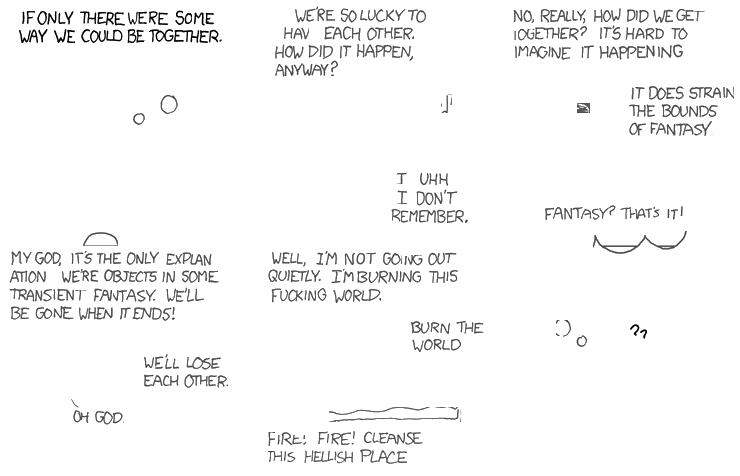 IF ONLY THERE WERE SOME
WAY WE COULD BE TOGETHER.
WE'RE SO LUCKY TO
HAV EACH OTHER.
HOW DID IT HAPPEN,
ANYWAY?
I UHH
I DON'T
REMEMBER.
NO, REALLY, HOW DID WE GET
TOGETHER? IT'S HARD TO
IMAGINE IT HAPPENING
IT DOES STRAIN
THE BOUNDS
OF FANTASY
FANTASY? THAT'S IT!
MY GOD, IT'S THE ONLY EXPLAN
ATION WE'RE OBJECTS IN SOME
TRANSIENT FANTASY. WE'LL
BE GONE WHEN IT ENDS!
WE'LL LOSE
EACH OTHER.
OH GOD.
WELL, I'M NOT GOING OUT
QUIETLY. I'M BURNING THIS
FUCKING WORLD.
BURN THE
WORLD
FIRE! FIRE! CLEANSE
THIS HELLISH PLACE
??